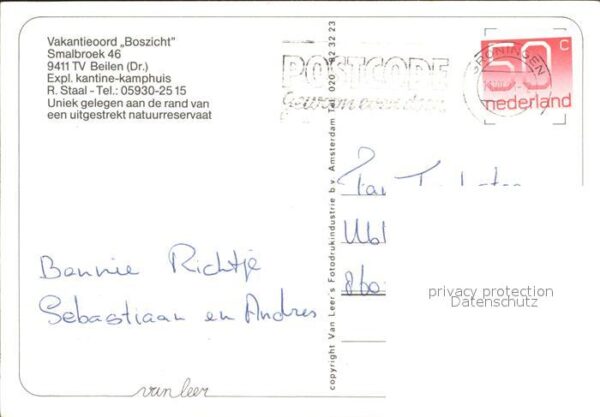 Vakantieoord „Boszicht"
Smalbroek 46
9411 TV Beilen (Dr.)
Expl. kantine-kamphuis
R. Staal - Tel.: 05930-2515
Uniek gelegen aan de rand van
een uitgestrekt natuurreservaat
POSTCODE
GRONINGEN
50 C
nederland
copyright Van Leer's Fotodrukindustrie b.v. Amsterdam Tel. 020
Bennie Richtje
Sebastiaan en Andres
privacy protection
Datenschutz
van leer